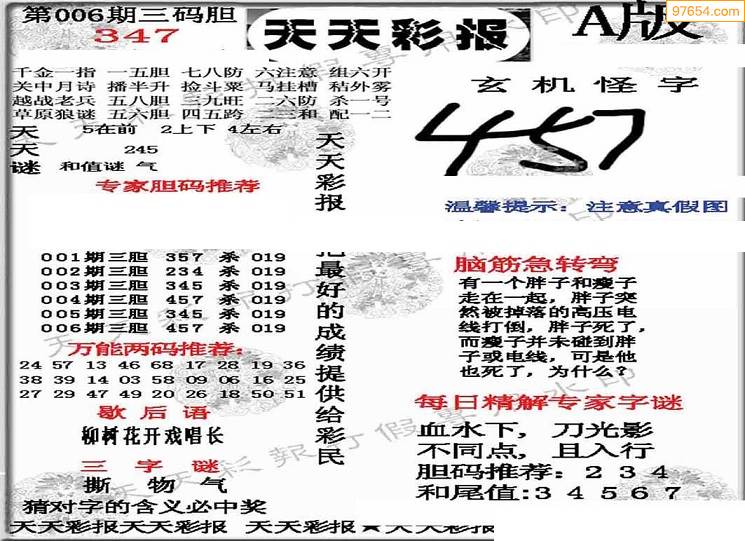 第006期三码胆
347
天天彩报
A版
97654.com
千金一指 一五胆 七八防 六注意 组六开
关中月诗 播半升 捡斗粟 马挂槽 秸外雾
越战老兵 五八胆 三九旺 二六防 杀一号
草原狼谜 五六胆 四五跨 二三和 配一二
天 5在前 2上下 4左右
天 245
谜 和值谜 气
专家胆码推荐
001期三胆 357 杀 019
002期三胆 234 杀 019
003期三胆 345 杀 019
004期三胆 457 杀 019
005期三胆 345 杀 019
006期三胆 457 杀 019
万能两码推荐:
24 57 13 46 68 17 28 19 36
38 39 14 03 58 09 06 16 25
27 29 47 49 20 26 18 50 51
歇后语
柳树花开戏唱长
三字谜
撕 物 气
猜对字的含义必中奖
天天彩报
把最好的成绩提供给彩民
玄机怪字
457
温馨提示: 注意真假图
脑筋急转弯
有一个胖子和瘦子
走在一起，胖子突
然被掉落的高压电
线打倒，胖子死了，
而瘦子并未碰到胖
子或电线，可是他
也死了，为什么？
每日精解专家字谜
血水下，刀光影
不同点，且入行
胆码推荐：234
和尾值:34567
天天彩报天天彩报 天天彩报★天天彩报